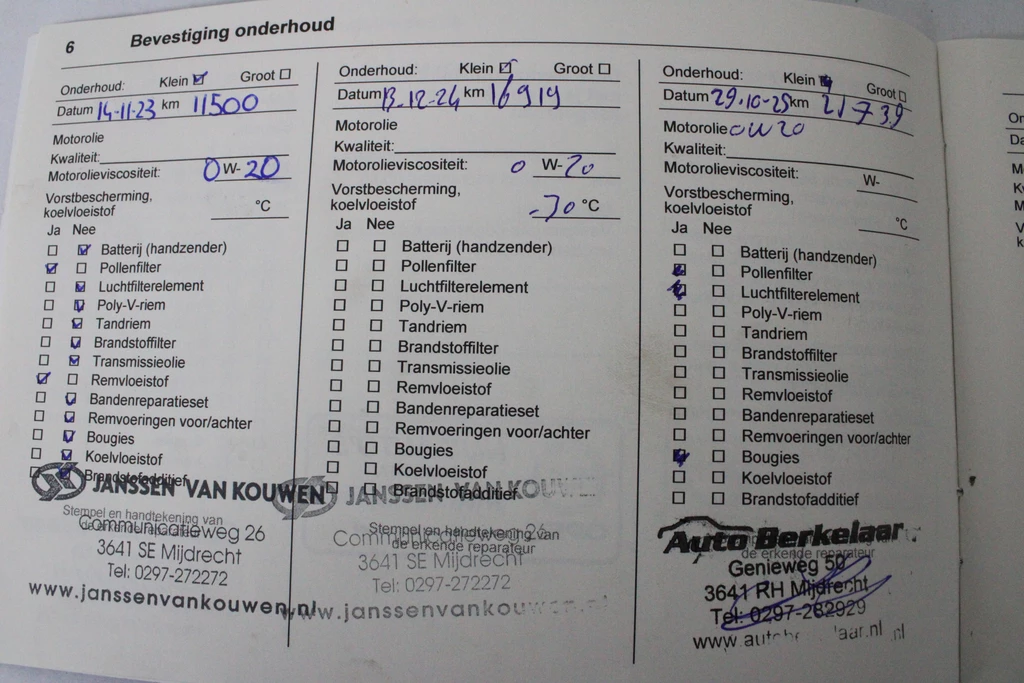 6 Bevestiging onderhoud
Onderhoud: Klein Groot
Datum 14-11-23 km 11500
Motorolie
Kwaliteit:
Motorolieviscositeit: 0 W-20
Vorstbescherming,
koelvloeistof °C
Ja Nee
Batterij (handzender)
Pollenfilter
Luchtfilterelement
Poly-V-riem
Tandriem
Brandstoffilter
Transmissieolie
Remvloeistof
Bandenreparatieset
Remvoeringen voor/achter
Bougies
Koelvloeistof
Brandstofadditief
JANSSEN VAN KOUWEN
Stempel en handtekening van
Communicatieweg 26
3641 SE Mijdrecht
Tel: 0297-272272
www.janssenvankouwen.nl
Onderhoud: Klein Groot
Datum 13-12-24 km 16919
Motorolie
Kwaliteit:
Motorolieviscositeit: 0 W-20
Vorstbescherming,
koelvloeistof -30 °C
Ja Nee
Batterij (handzender)
Pollenfilter
Luchtfilterelement
Poly-V-riem
Tandriem
Brandstoffilter
Transmissieolie
Remvloeistof
Bandenreparatieset
Remvoeringen voor/achter
Bougies
Koelvloeistof
Brandstofadditief
JANSSEN VAN KOUWEN
Stempel en handtekening van
de erkende reparateur
Communicatieweg 26
3641 SE Mijdrecht
Tel: 0297-272272
www.janssenvankouwen.nl
Onderhoud: Klein Groot
Datum 29-10-25 km 21739
Motorolie 0W20
Kwaliteit:
Motorolieviscositeit: W-
Vorstbescherming,
koelvloeistof °C
Ja Nee
Batterij (handzender)
Pollenfilter
Luchtfilterelement
Poly-V-riem
Tandriem
Brandstoffilter
Transmissieolie
Remvloeistof
Bandenreparatieset
Remvoeringen voor/achter
Bougies
Koelvloeistof
Brandstofadditief
Auto Berkelaar
de erkende reparateur
Genieweg 50
3641 RH Mijdrecht
Tel: 0297-282929